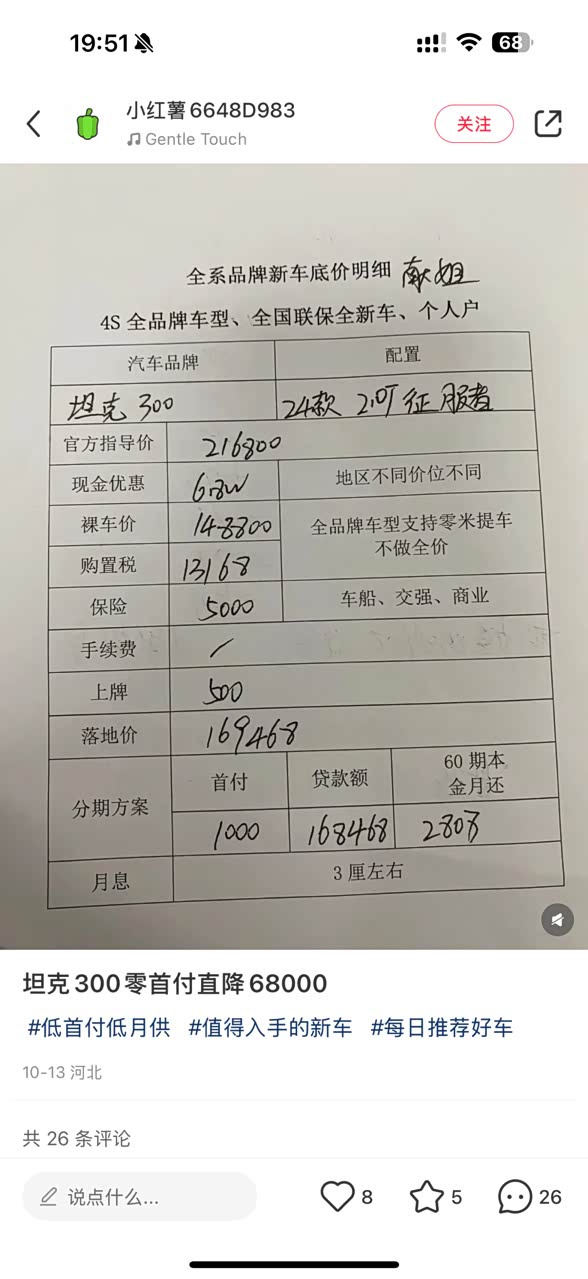 19:51
68
小红薯6648D983
Gentle Touch
关注
全系品牌新车底价明细 献姐
4S 全品牌车型、全国联保全新车、个人户
汽车品牌 配置
坦克 300 24款 2.0T 征服者
官方指导价 216800
现金优惠 6.8W 地区不同价位不同
裸车价 148800 全品牌车型支持零米提车
不做全价
购置税 13168
保险 5000 车船、交强、商业
手续费 /
上牌 500
落地价 169468
分期方案 首付 贷款额 60 期本
金月还
1000 168468 2808
月息 3 厘左右
坦克300零首付直降68000
#低首付低月供 #值得入手的新车 #每日推荐好车
10-13 河北
共 26 条评论
说点什么...
8
5
26